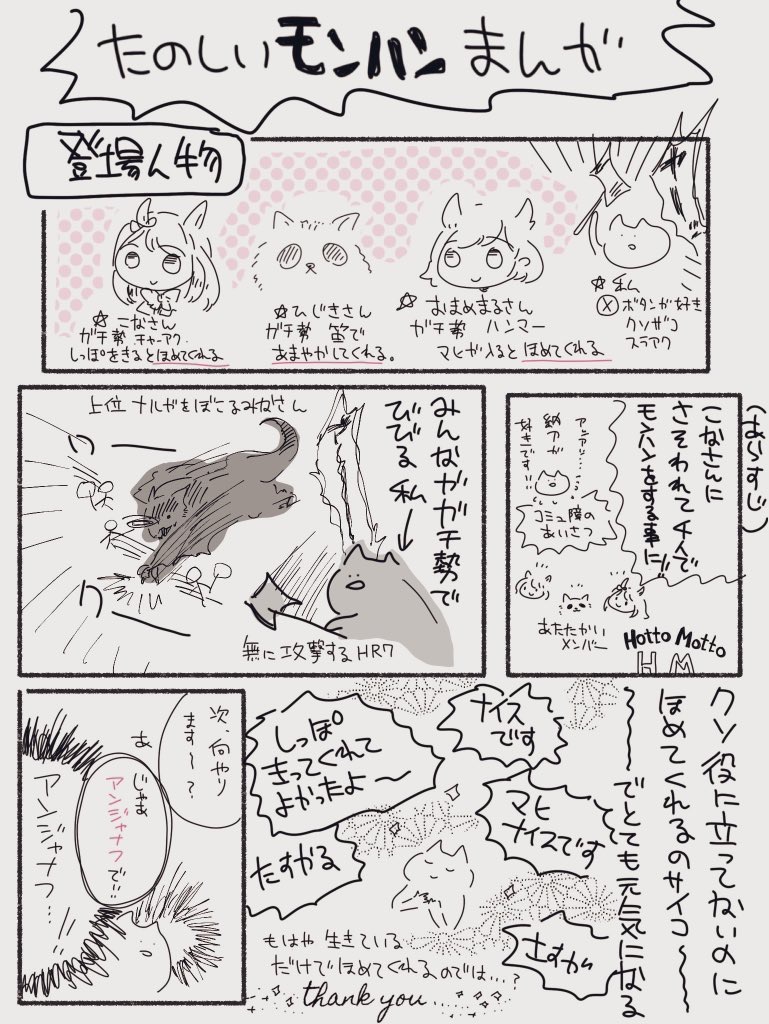 たのしいモンハンまんが
登場人物
☆こなさん
ガチ勢 チャーアク.
しっぽをきるとほめてくれる
☆ひじきさん
ガチ勢 笛で
あまやかしてくれる。
☆おまめまるさん
ガチ勢 ハンマー
マヒが入るとほめてくれる
☆私
Ⓧボタンが好き
クソザコ
スラアク
(あらすじ)
こなさんに
さそわれて4人で
モンハンをする事に!!
アンアリ…
納刀が
好きです…
コミュ障の
あいさつ
あたたかい
メンバー
Hotto Motto
H M
みんながガチ勢で
びびる私
上位ナルガをぼこるみなさん
ワー
ワー
無に攻撃するHR7
クソ役に立ってないのに
ほめてくれるのサイコ〜〜
〜〜でとても元気になる
ナイス
です
しっぽ
きってくれて
よかったよ〜
マヒ
ナイスです
たすかる
さすが
もはや生きている
だけでほめてくれるのでは…?
thank you
次、何やり
ます〜?
あ
じゃあ
アンジャナフ
で…
アンジャナフ…